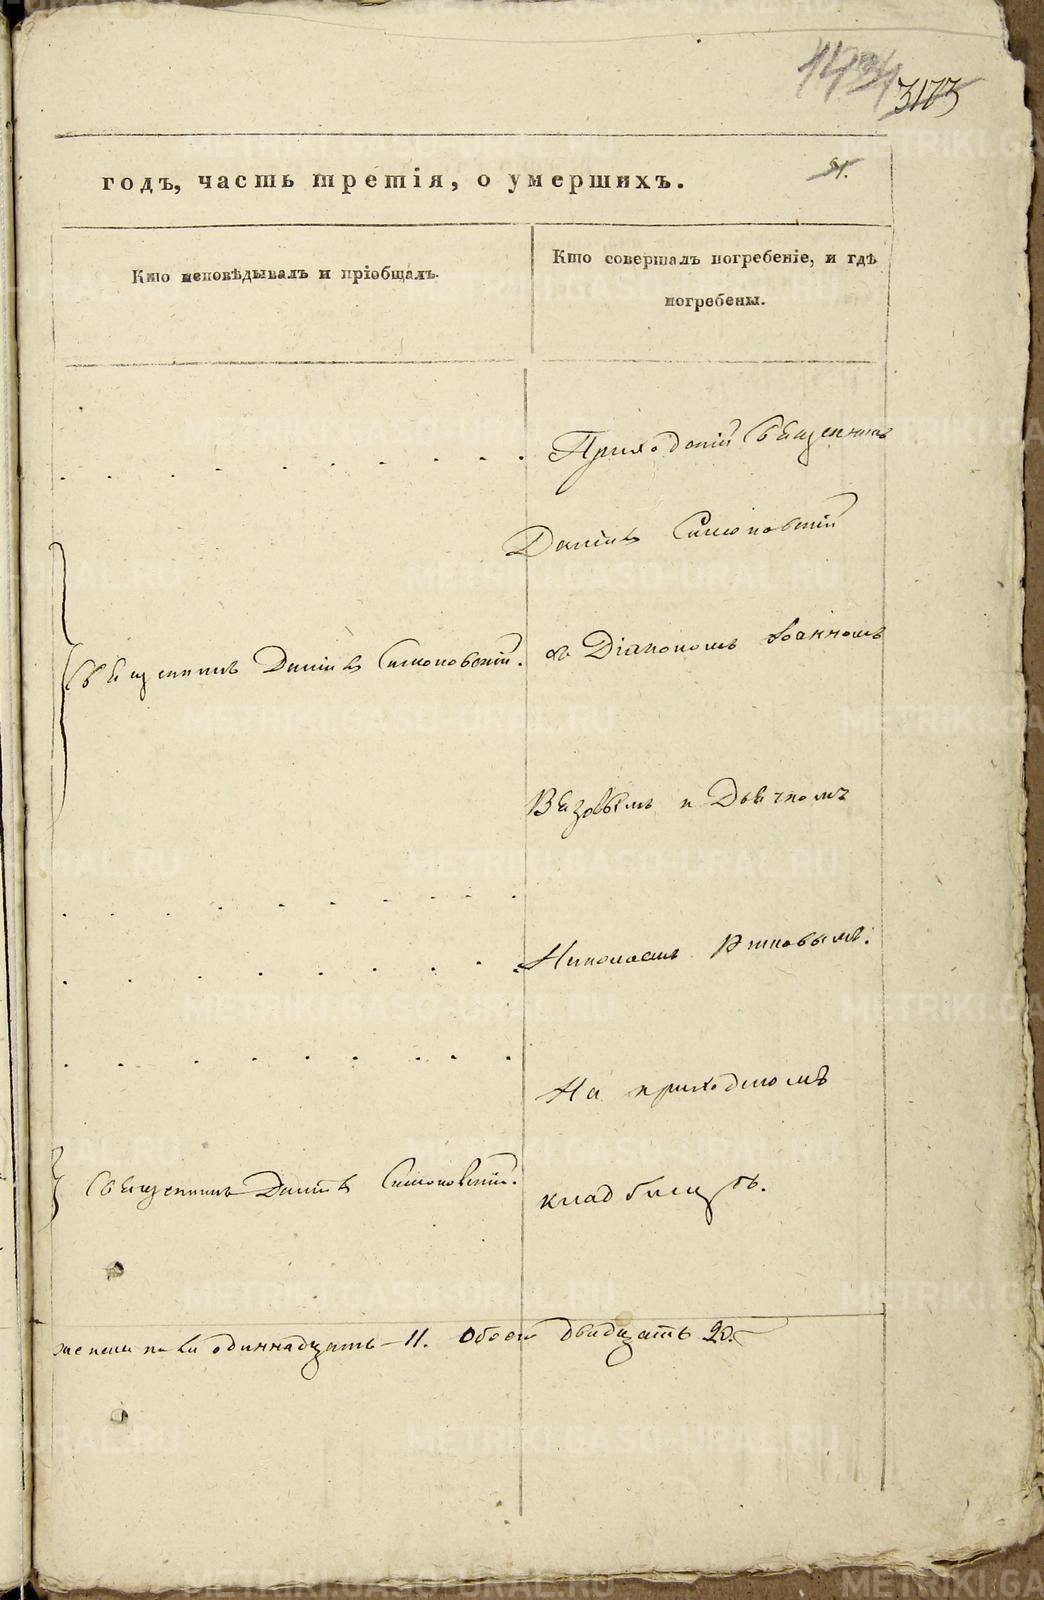 3173
годъ, часть третія, о умершихъ.
Кто исповѣдывалъ и пріобщалъ.
Кто совершалъ погребеніе, и гдѣ
погребены.
Приходскій Священникъ
Даніилъ Симоновскій
Священникъ Даніилъ Симоновскій.
съ Діакономъ Іоанномъ
и Дьячкомъ
Николаемъ
На приходскомъ
Священникъ Даніилъ Симоновскій.
кладбищѣ.
женска пола одиннадцать – 11. Обоего двадцать 20.
METRIKI.GASO-URAL.RU